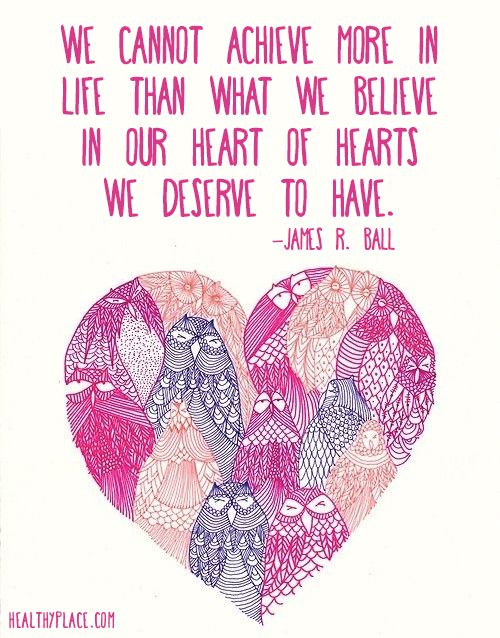 WE CANNOT ACHIEVE MORE IN
LIFE THAN WHAT WE BELIEVE
IN OUR HEART OF HEARTS
WE DESERVE TO HAVE.
-JAMES R. BALL
HEALTHYPLACE.COM